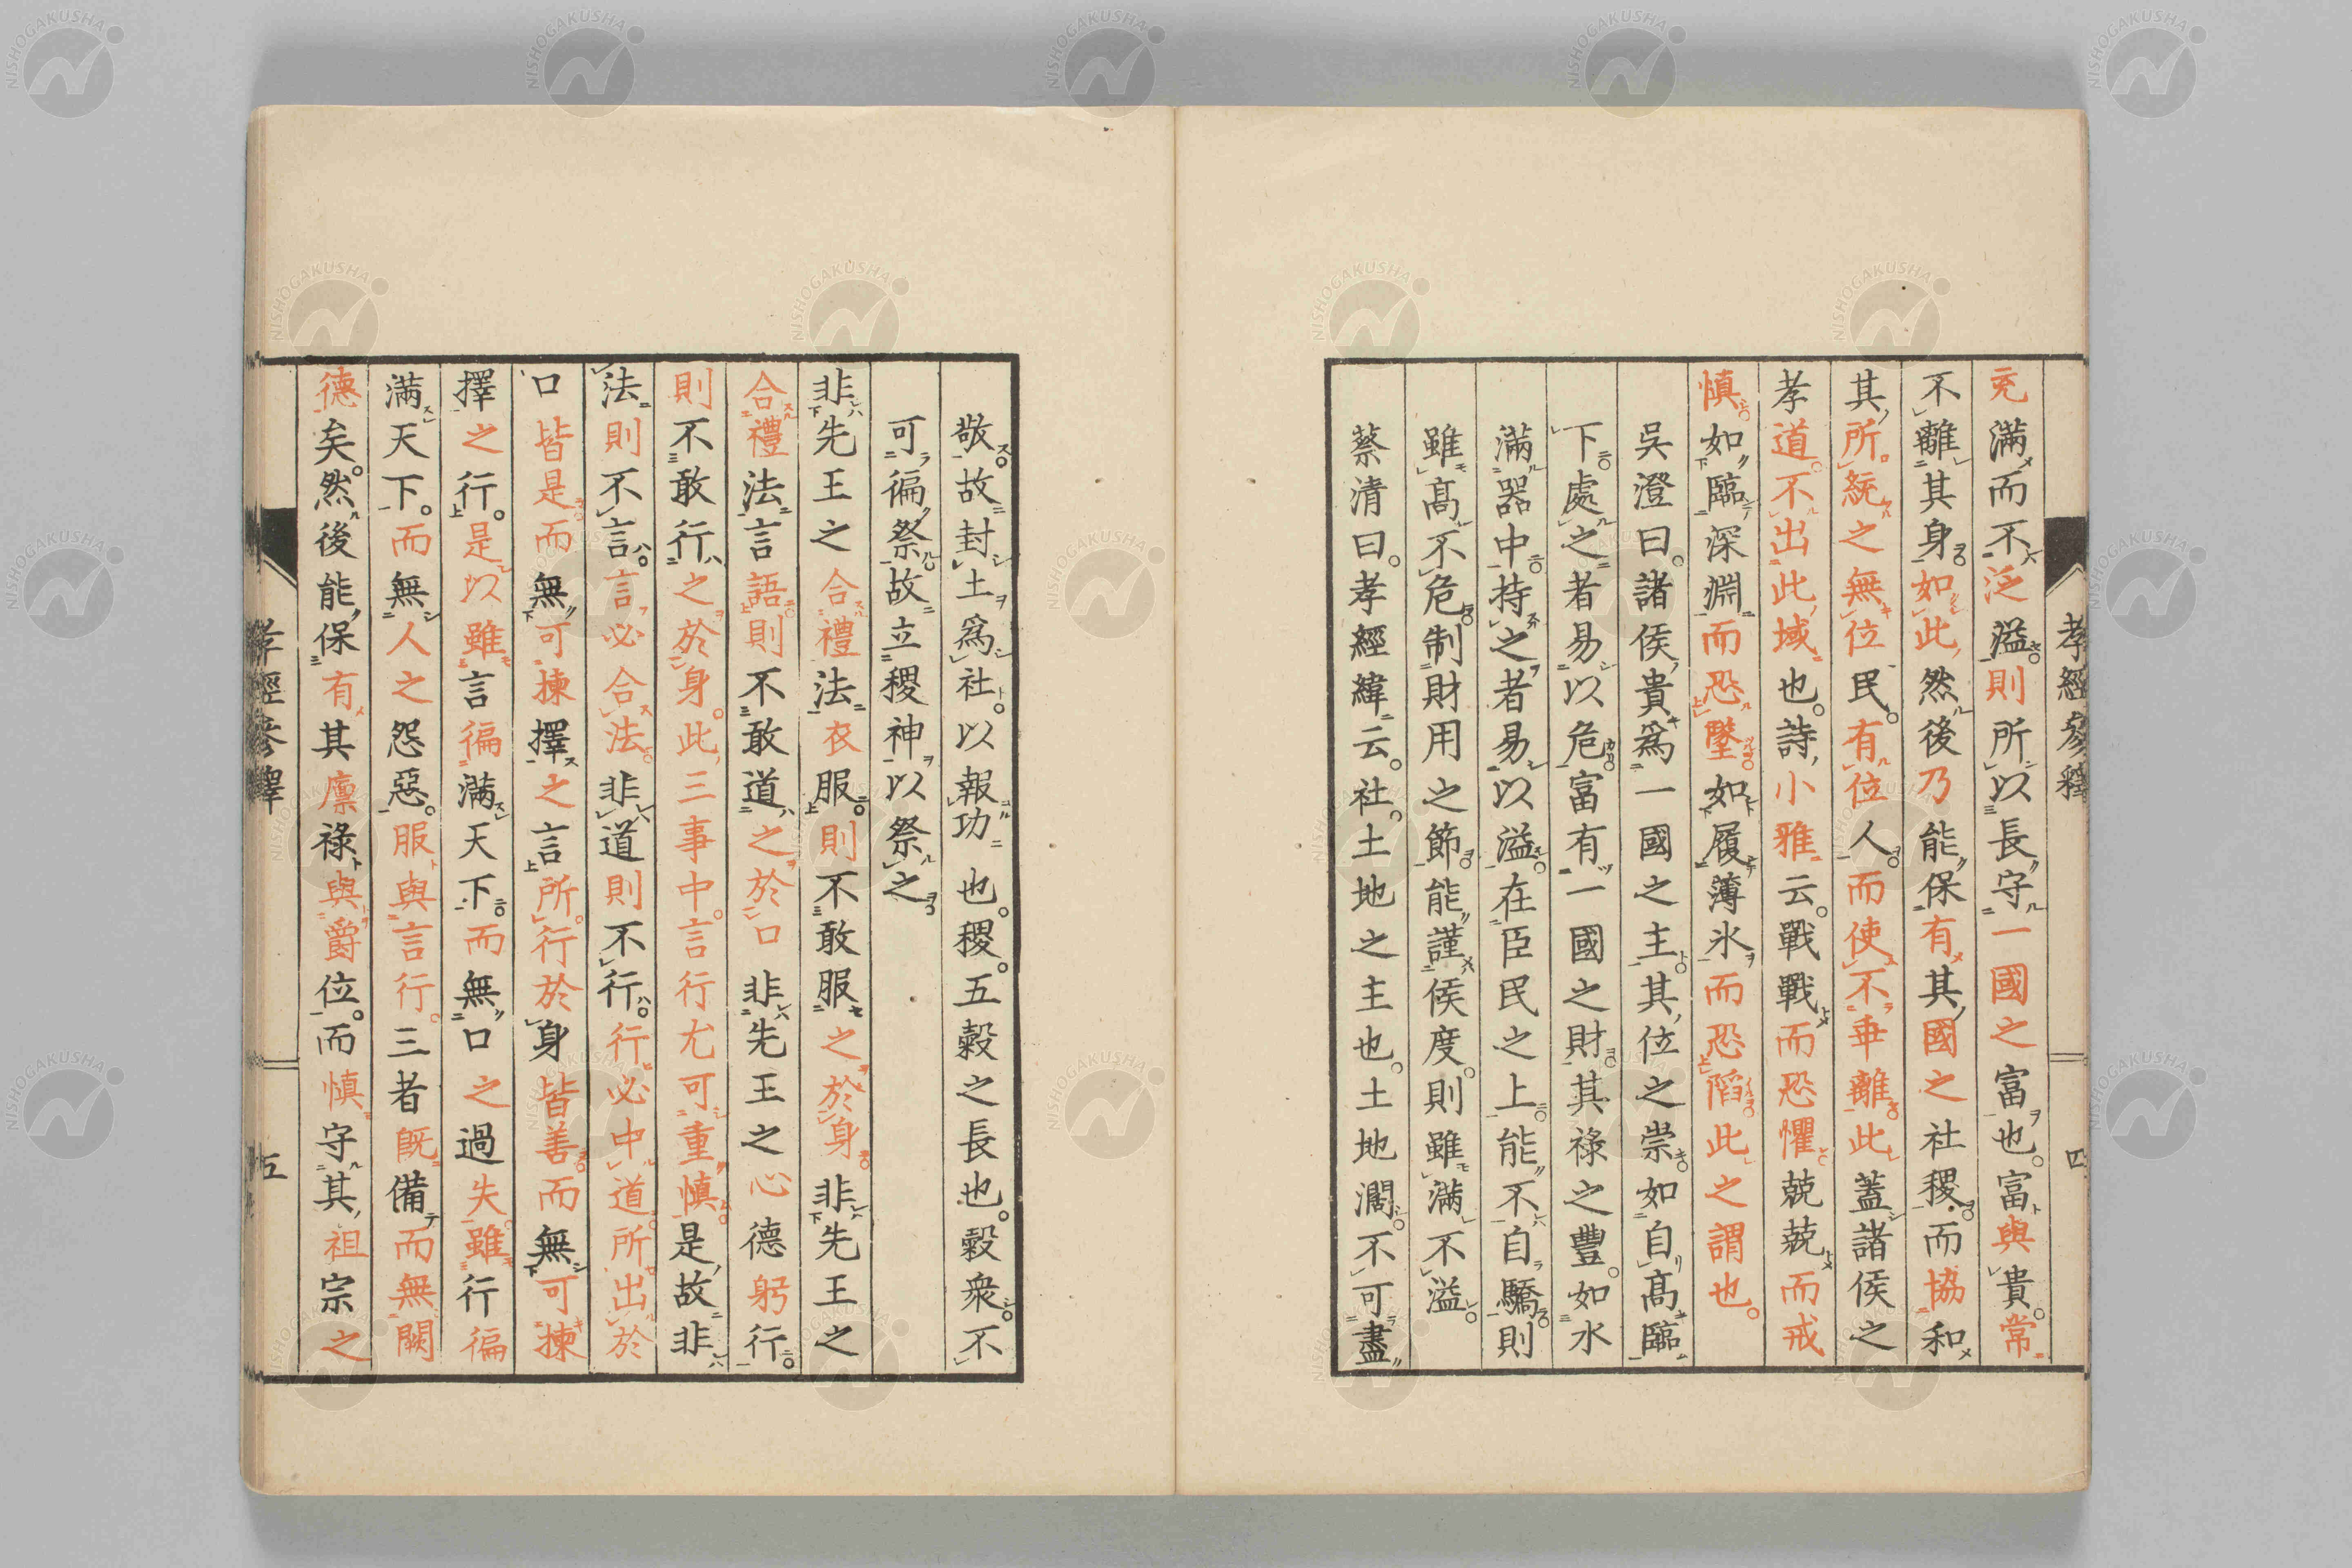 充滿而不泛溢則所以長守一國之富也。富與貴常
不離其身如此然後乃能保有其國之社稷而協和
其所統之無位民。有位人而使不乖離此蓋諸侯之
孝道不出此域也。詩小雅云。戰戰而恐懼兢兢而戒
慎。如臨深淵而恐墜如履薄氷而恐陷此之謂也。
吳澄曰。諸侯貴爲一國之主其位之崇如自高臨
下處之者易以危富有一國之財其祿之豐如水
滿器中持之者易以溢在臣民之上能不自驕則
雖高不危制財用之節能謹侯度。則雖滿不溢。
蔡清曰。孝經緯云。社。土地之主也。土地濶不可盡
孝經參釋
四
敬。故封土爲社。以報功也。稷。五穀之長也。穀衆。不
可徧祭故立稷神以祭之
非先王之合禮法衣服則不敢服之於身非先王之
合禮法言語則不敢道之於口非先王之心德躬行
則不敢行之於身。此三事中。言行尤可重慎。是故非
法則不言。言必合法。非道則不行。行必中道。所出於
口皆是而無可揀擇之言所行於身皆善而無可揀
擇之行。是以雖言徧滿天下而無口之過失雖行徧
滿天下。而無人之怨惡。服與言行。三者既備而無闕
德矣。然後能保有其廩祿與爵位。而慎守其祖宗之
孝經參釋
五